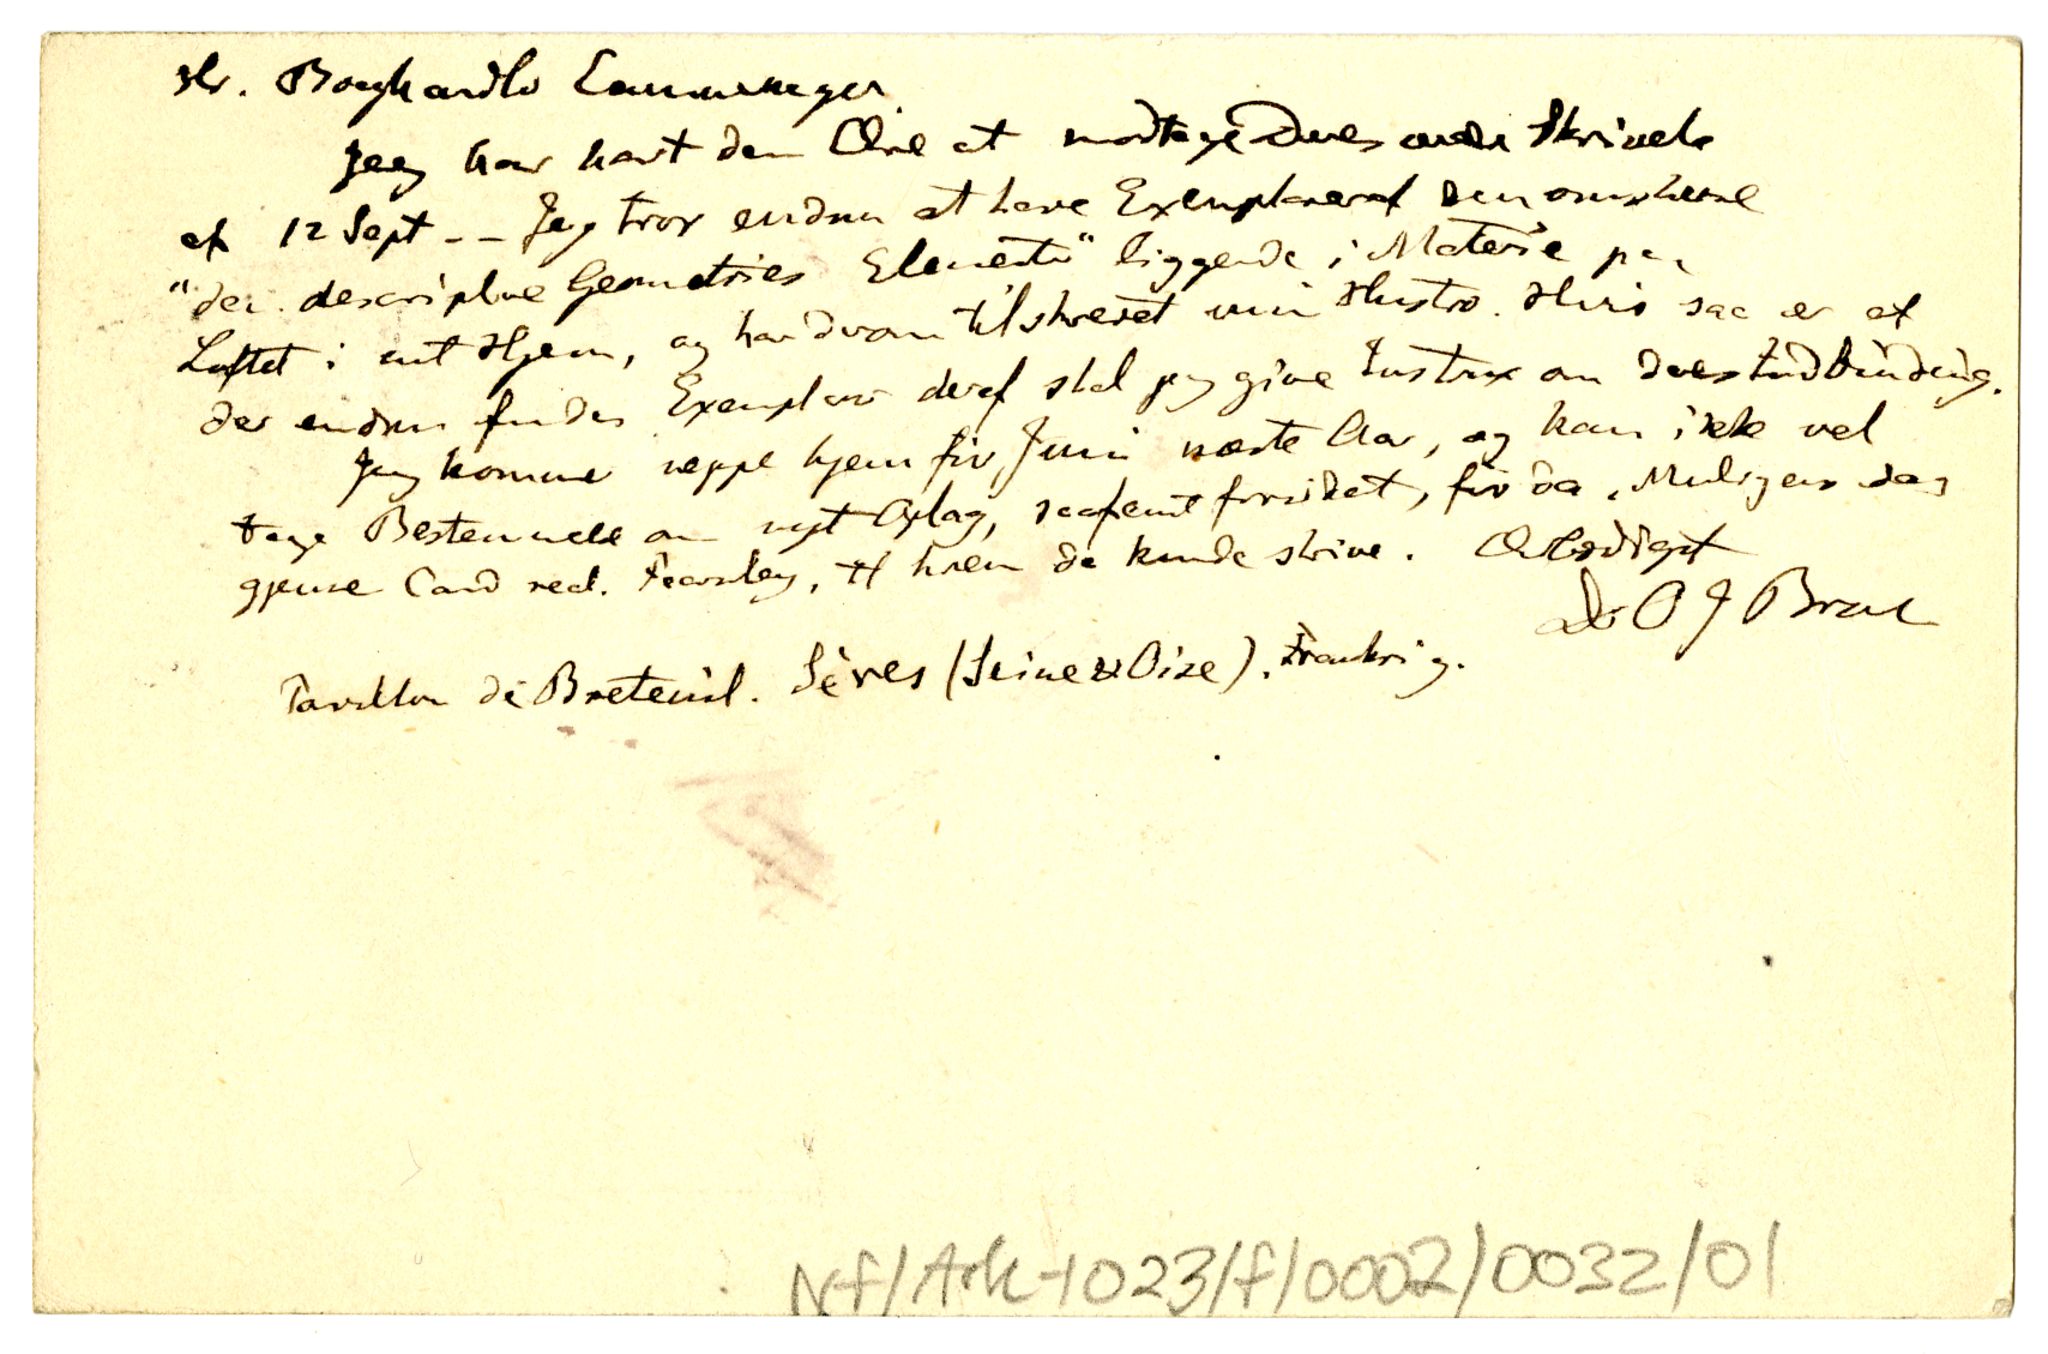 Hr. Boghandler Cammermeyer.
Jeg har havt den Ære at modtage Deres ærede Skrivelse
af 12 Sept -- Jeg tror endnu at have Exemplarer af den omskrevne
"den descriptive Geometries Elementer" liggende i Materie paa
Loftet i mit Hjem, og har derom tilskrevet min Hustro. Hvis saa er at
der endnu findes Exemplarer deraf skal jeg give Instrux om deres Indbinding.
Jeg kommer neppe hjem før Juni næste Aar, og kan ikke vel
tage Bestemmelse om nyt Oplag, saafremt fornødent, før da. Muligens dog
gjennem Cand real. Fearnley, til hvem de kunde skrive. Ærbødigst
Dr O J Broch
Pavillon de Breteuil. Sèvres (Seine & Oise). Frankrig.
NF/Ark-1023/f/0002/0032/01